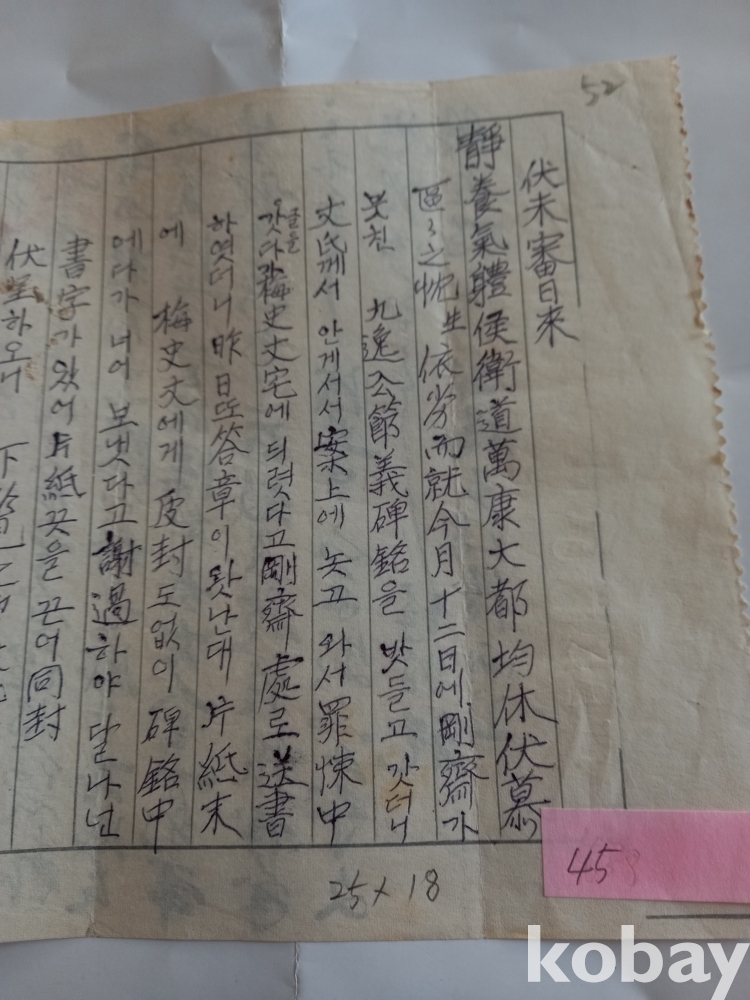 52
伏未審日來
靜養氣體侯衛道萬康大都均休伏慕
區〻之忱生 依劣而就今月十二日에剛齋가
못친 九逸公節義碑銘을 밧들고 갓더니
丈氏께서 안게서서案上에 놋고 와서罪悚中
글을
갓다가梅史丈宅에 듸렷다고剛齋處로送書
하엿더니昨日또答章이왓난대 片紙末
에 梅史丈에게 皮封도없이碑銘中
에다가 너어 보냇다고謝過하야 달나넌
書字가있어片紙끗을 끈어同封
伏望하오니 下
25×18
45
kobay